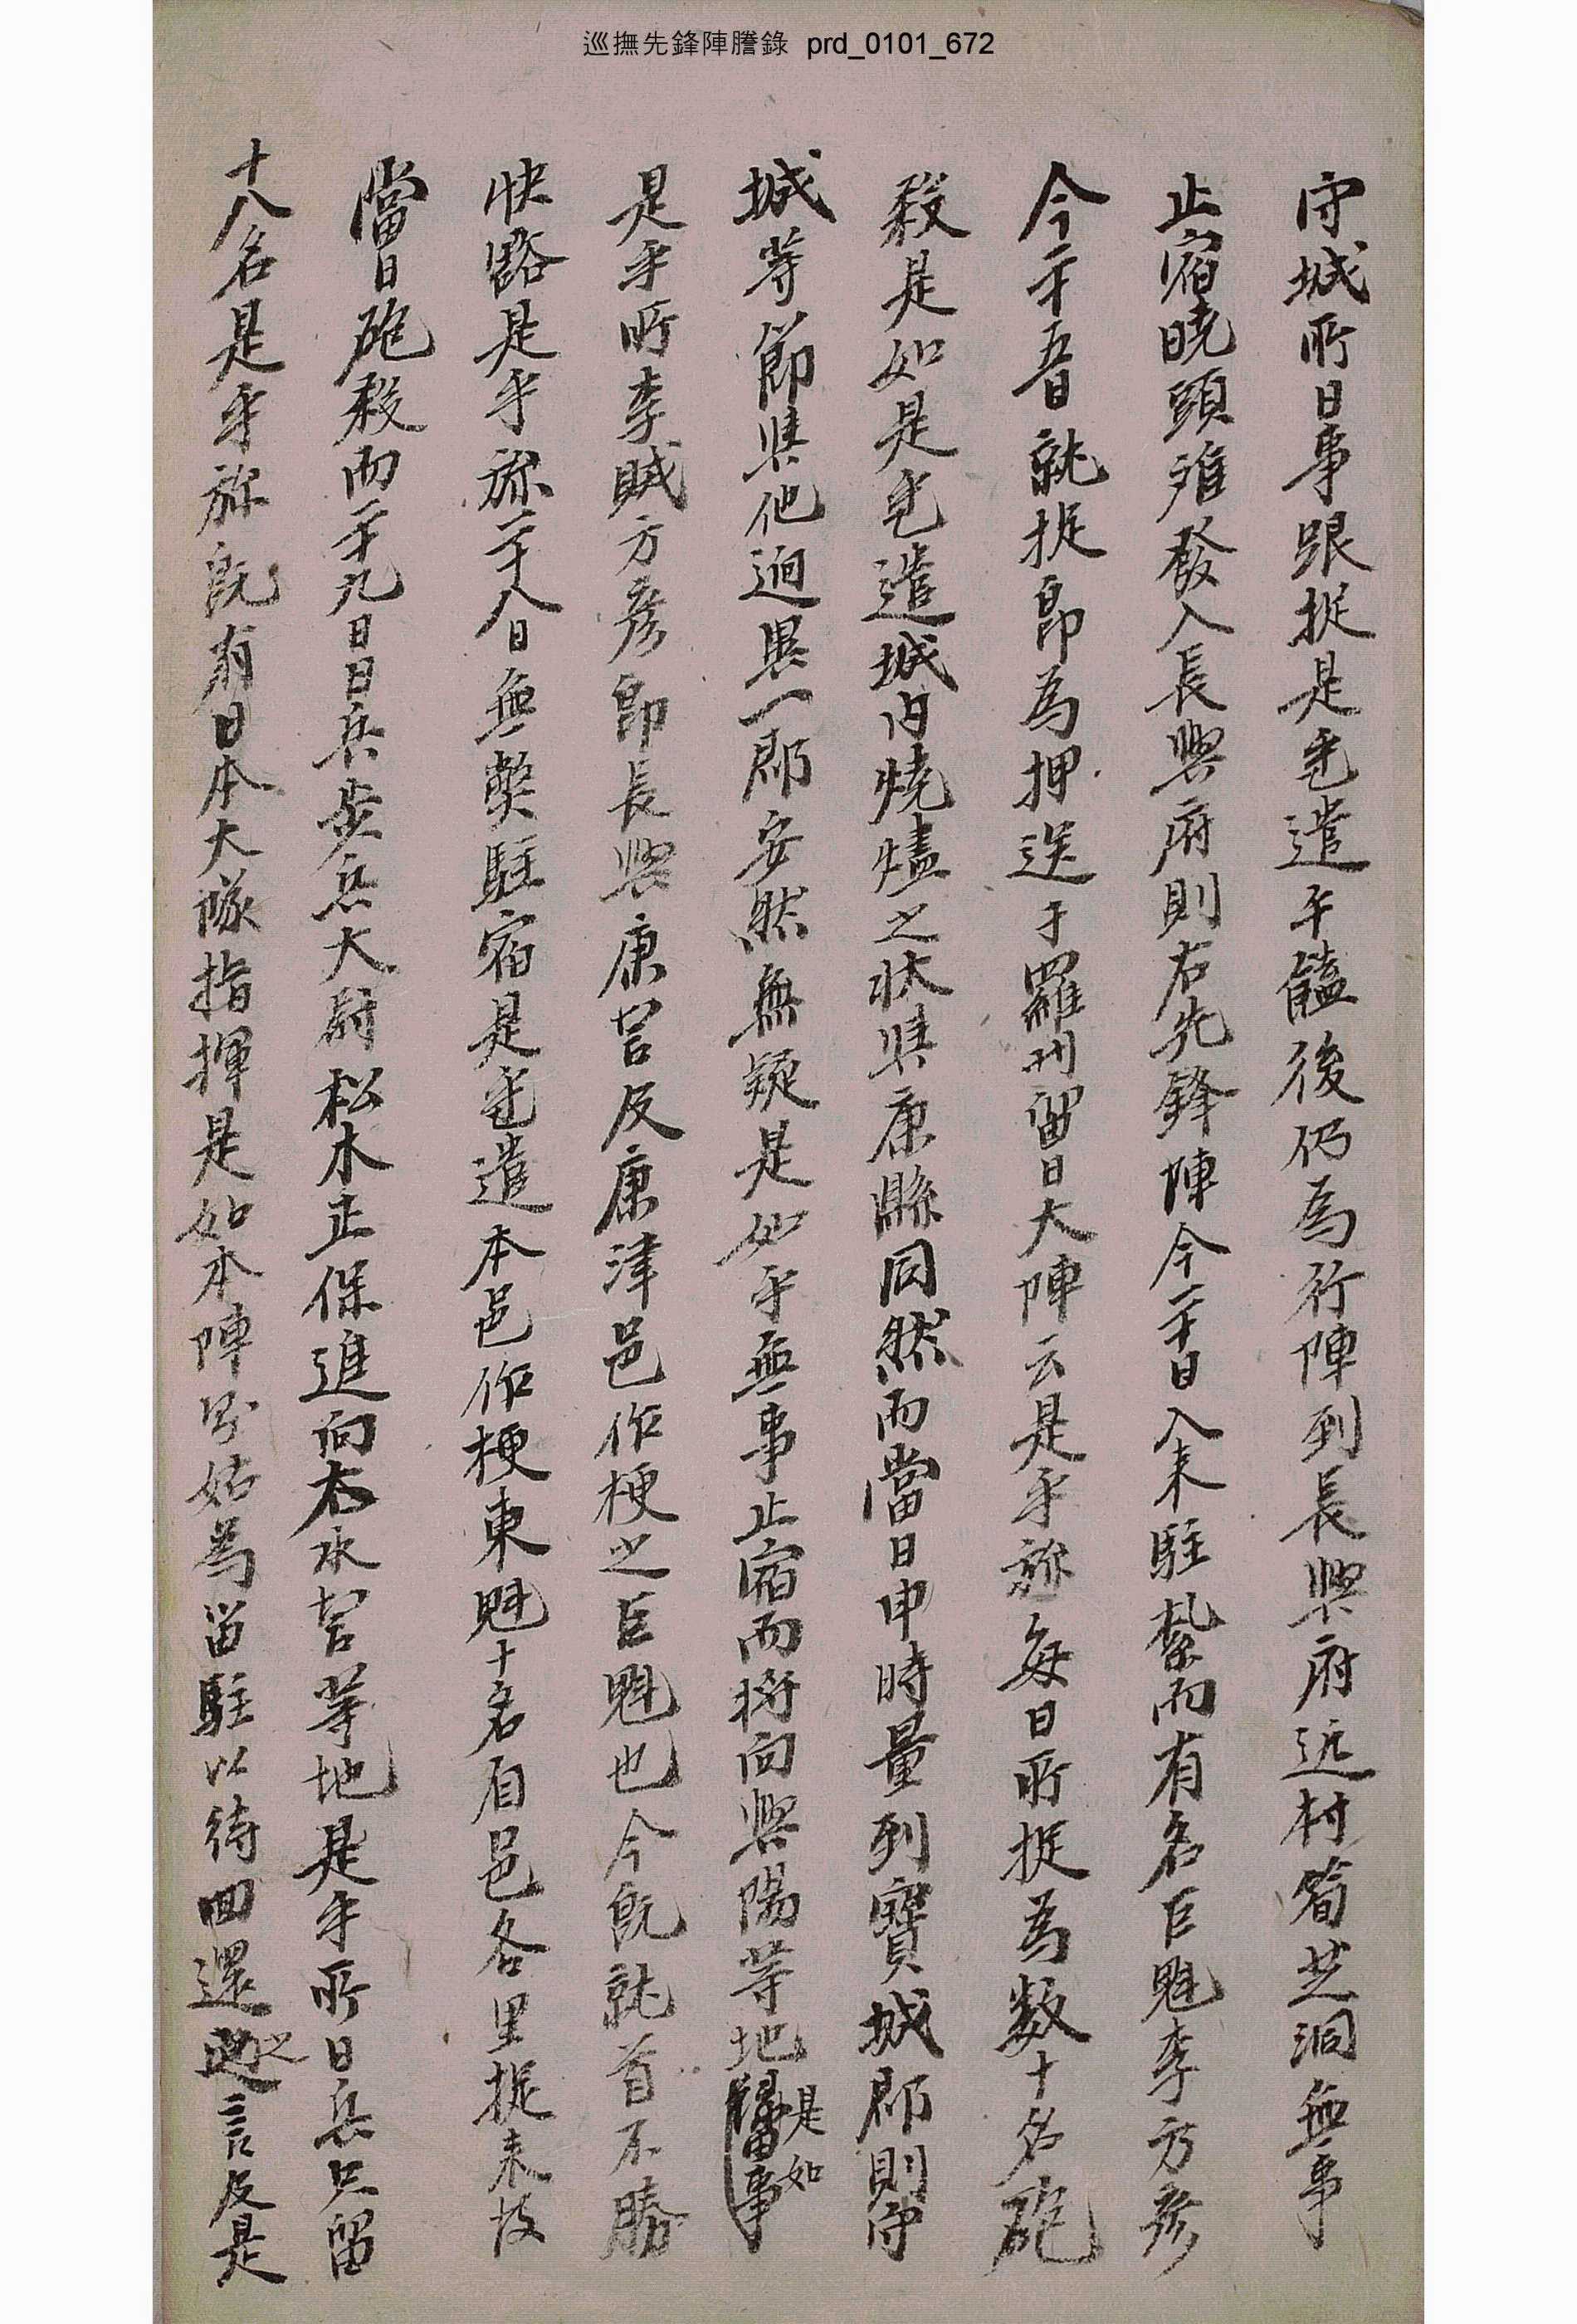 巡撫先鋒陣謄錄 prd_0101_672
守城所日事跟捉是乎遣午饁後仍爲行陣到長興府近村筍芝洞無事
止宿曉頭難發入長興府則右先鋒陣今二十日入來駐紮而有名巨魁李方彦
今二十五日就捉卽爲押送于羅州留日大陣云是乎旀每日所捉爲數十名砲
殺是如是乎遣城內燒燼之狀與康縣同然而當日申時量到寶城郡則守
城等節與他逈異一郡安然無疑是如乎無事止宿而將向興陽等地是如
是乎所李賊方彦卽長興康营及康津邑作梗之巨魁也今旣就首不勝
快豁是乎旀二十八日無獘駐宿是乎遣本邑作梗東魁十名自邑各里捉來故
當日砲殺而二十九日日兵步兵大尉松木正保進向右水营等地是乎所日兵只留
十八名是乎旀旣有日本大隊指揮是如本陣段姑爲留駐以待回還之言及是